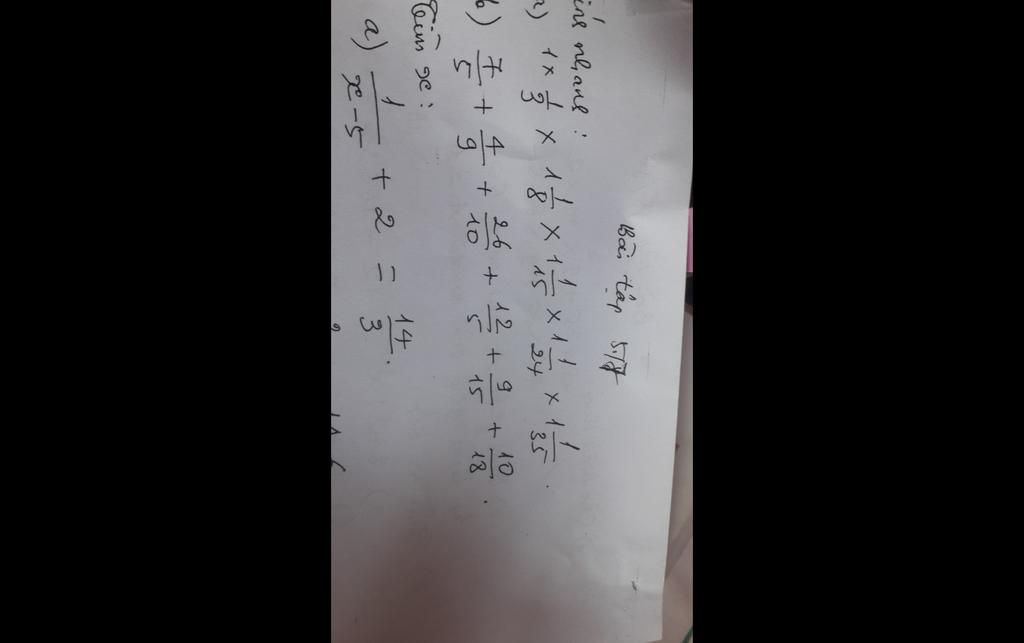 Bài tập 5/7
nhanh :
1 × 1/3 × 1 1/8 × 1 1/15 × 1 1/24 × 1 1/35 .
b) 7/5 + 4/9 + 26/10 + 12/5 + 9/15 + 10/18 .
Tìm x :
a) 1/x-5 + 2 = 14/3 .